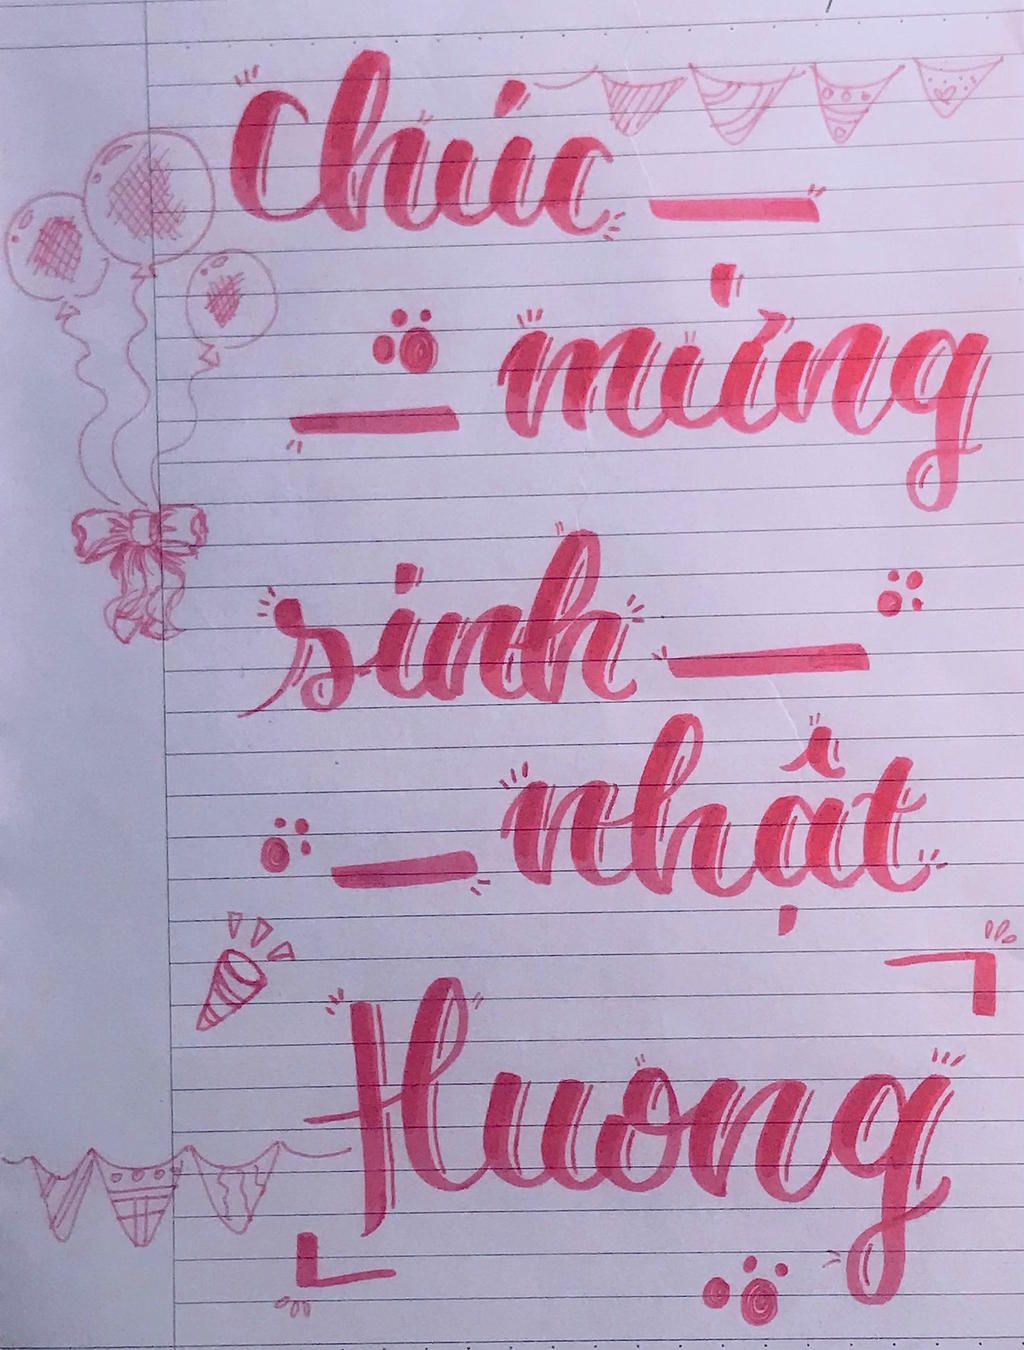 Chúc
mừng
sinh
nhật
Huong